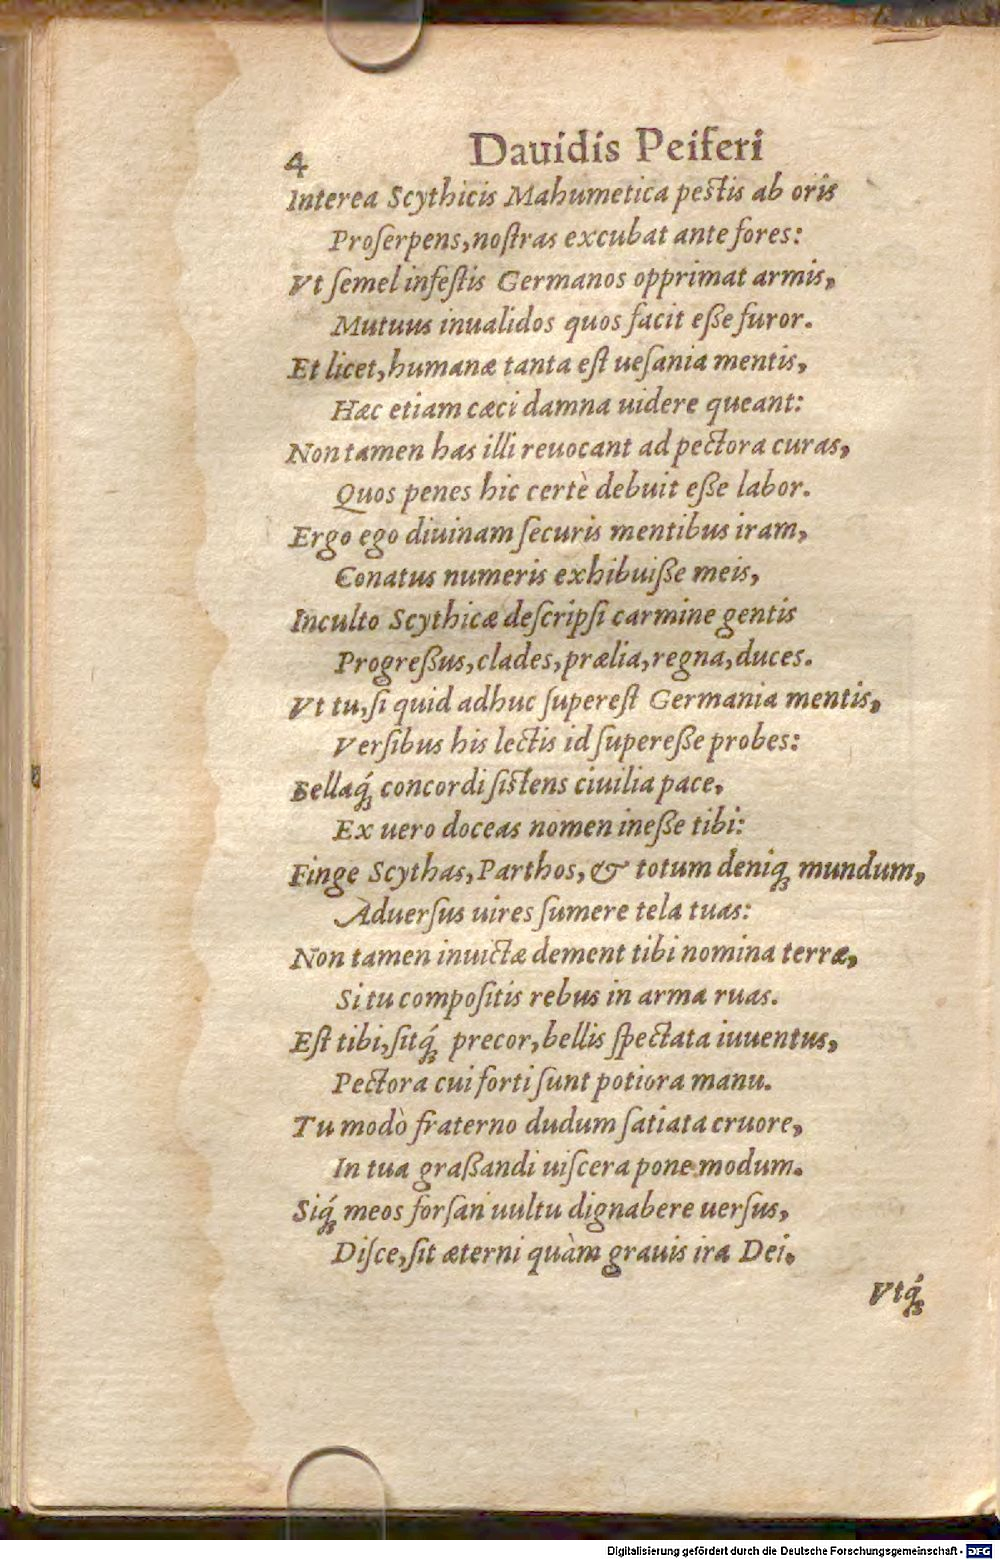 4 Dauidis Peiferi
Interea Scythicis Mahumetica pestis ab oris
Proſerpens, noſtras excubat ante fores:
Vt ſemel infeſtis Germanos opprimat armis,
Mutuus inualidos quos facit eſſe furor.
Et licet, humanæ tanta eſt ueſania mentis,
Hæc etiam cæci damna uidere queant:
Non tamen has illi reuocant ad pectora curas,
Quos penes hic certè debuit eſſe labor.
Ergo ego diuinam ſecuris mentibus iram,
Conatus numeris exhibuiſſe meis,
Inculto Scythicæ deſcripſi carmine gentis
Progreſſus, clades, prælia, regna, duces.
Vt tu, ſi quid adhuc ſupereſt Germania mentis,
Verſibus his lectis id ſupereſſe probes:
Bellaq́; concordi ſistens ciuilia pace,
Ex uero doceas nomen ineſſe tibi:
Finge Scythas, Parthos, & totum deniq; mundum,
Aduerſus uires ſumere tela tuas:
Non tamen inuictæ dement tibi nomina terræ,
Si tu compoſitis rebus in arma ruas.
Eſt tibi, ſitq́; precor, bellis ſpectata iuuentus,
Pectora cui forti ſunt potiora manu.
Tu modò fraterno dudum ſatiata cruore,
In tua graſſandi uiſcera pone modum.
Siq́; meos forſan uultu dignabere uerſus,
Diſce, ſit æterni quàm grauis ira Dei.
Vtq́;
Digitalisierung gefördert durch die Deutsche Forschungsgemeinschaft - DFG